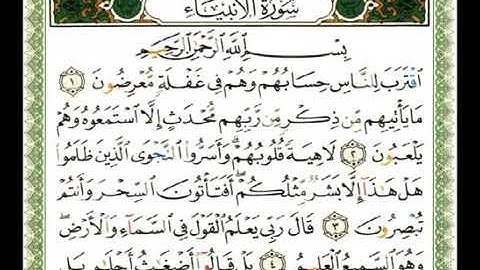 سُورَةُ الْأَنْبِيَاءِ
بِسْمِ اللَّهِ الرَّحْمَٰنِ الرَّحِيمِ
ٱقْتَرَبَ لِلنَّاسِ حِسَابُهُمْ وَهُمْ فِى غَفْلَةٍ مُّعْرِضُونَ ١
مَا يَأْتِيهِم مِّن ذِكْرٍ مِّن رَّبِّهِم مُّحْدَثٍ إِلَّا ٱسْتَمَعُوهُ وَهُمْ
يَلْعَبُونَ ٢ لَاهِيَةً قُلُوبُهُمْ ۗ وَأَسَرُّوا۟ ٱلنَّجْوَى ٱلَّذِينَ ظَلَمُوا۟
هَلْ هَٰذَآ إِلَّا بَشَرٌ مِّثْلُكُمْ ۖ أَفَتَأْتُونَ ٱلسِّحْرَ وَأَنتُمْ
تُبْصِرُونَ ٣ قَالَ رَبِّى يَعْلَمُ ٱلْقَوْلَ فِى ٱلسَّمَآءِ وَٱلْأَرْضِ ۖ
وَهُوَ ٱلسَّمِيعُ ٱلْعَلِيمُ ٤ بَلْ قَالُوٓا۟ أَضْغَٰثُ أَحْلَٰمٍۭ بَلِ